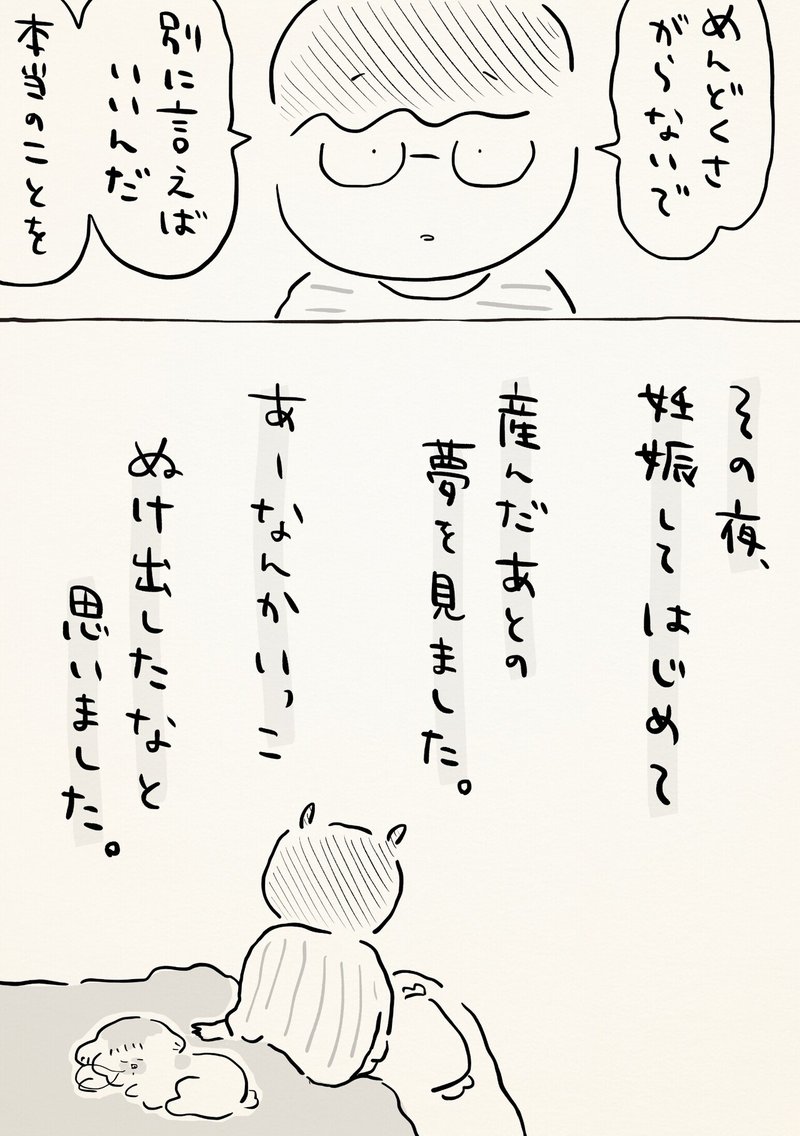 めんどくさ
がらないで
別に言えば
いいんだ
本当のことを
その夜、
妊娠してはじめて
産んだあとの
夢を見ました。
あーなんかいっこ
ぬけ出したなと
思いました。